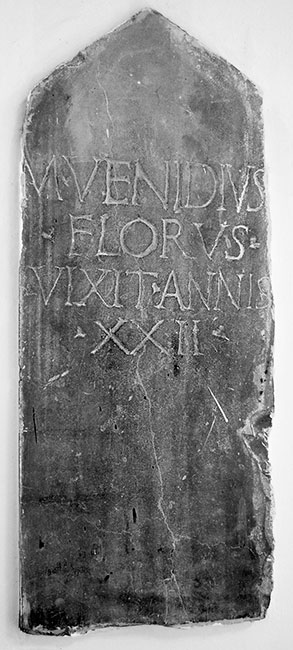 M·VENIDIVS
·FLORVS·
VIXIT·ANNIS
·XXII·